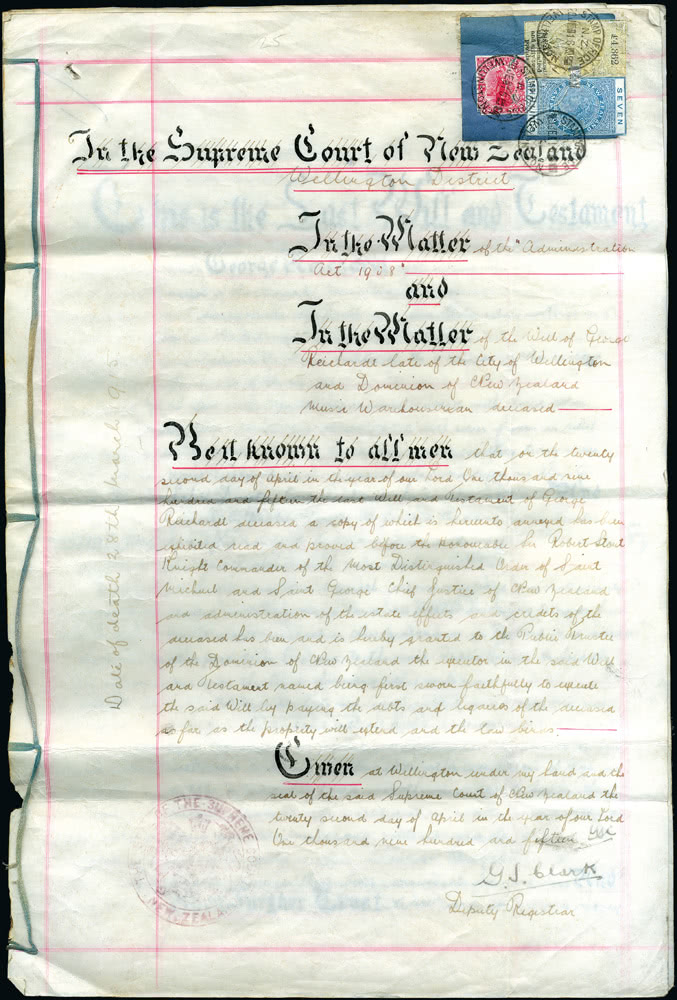 £1382
SEVEN
In the Supreme Court of New Zealand
Wellington District
In the Matter of the "Administration
Act 1908"
and
In the Matter of the Will of George
Reichardt late of the City of Wellington
and Dominion of New Zealand
Music Warehouseman deceased
Be it known to all men that on the twenty
second day of April in the year of our Lord One thousand nine
hundred and fifteen the last Will and Testament of George
Reichardt deceased a copy of which is hereunto annexed has been
exhibited read and proved before the Honourable Sir Robert Stout
Knight Commander of the Most Distinguished Order of Saint
Michael and Saint George Chief Justice of New Zealand
and administration of the estate effects and credits of the
deceased has been and is hereby granted to the Public Trustee
of the Dominion of New Zealand the executor in the said Will
and Testament named being first sworn faithfully to execute
the said Will by paying the debts and legacies of the deceased
as far as the property will extend and the law binds
Given at Wellington under my hand and the
seal of the said Supreme Court of New Zealand the
twenty second day of April in the year of our Lord
One thousand nine hundred and fifteen
G.S. Clark
Deputy Registrar
Date of death 28th March 1915
THE SUPREME
NEW ZEALAND